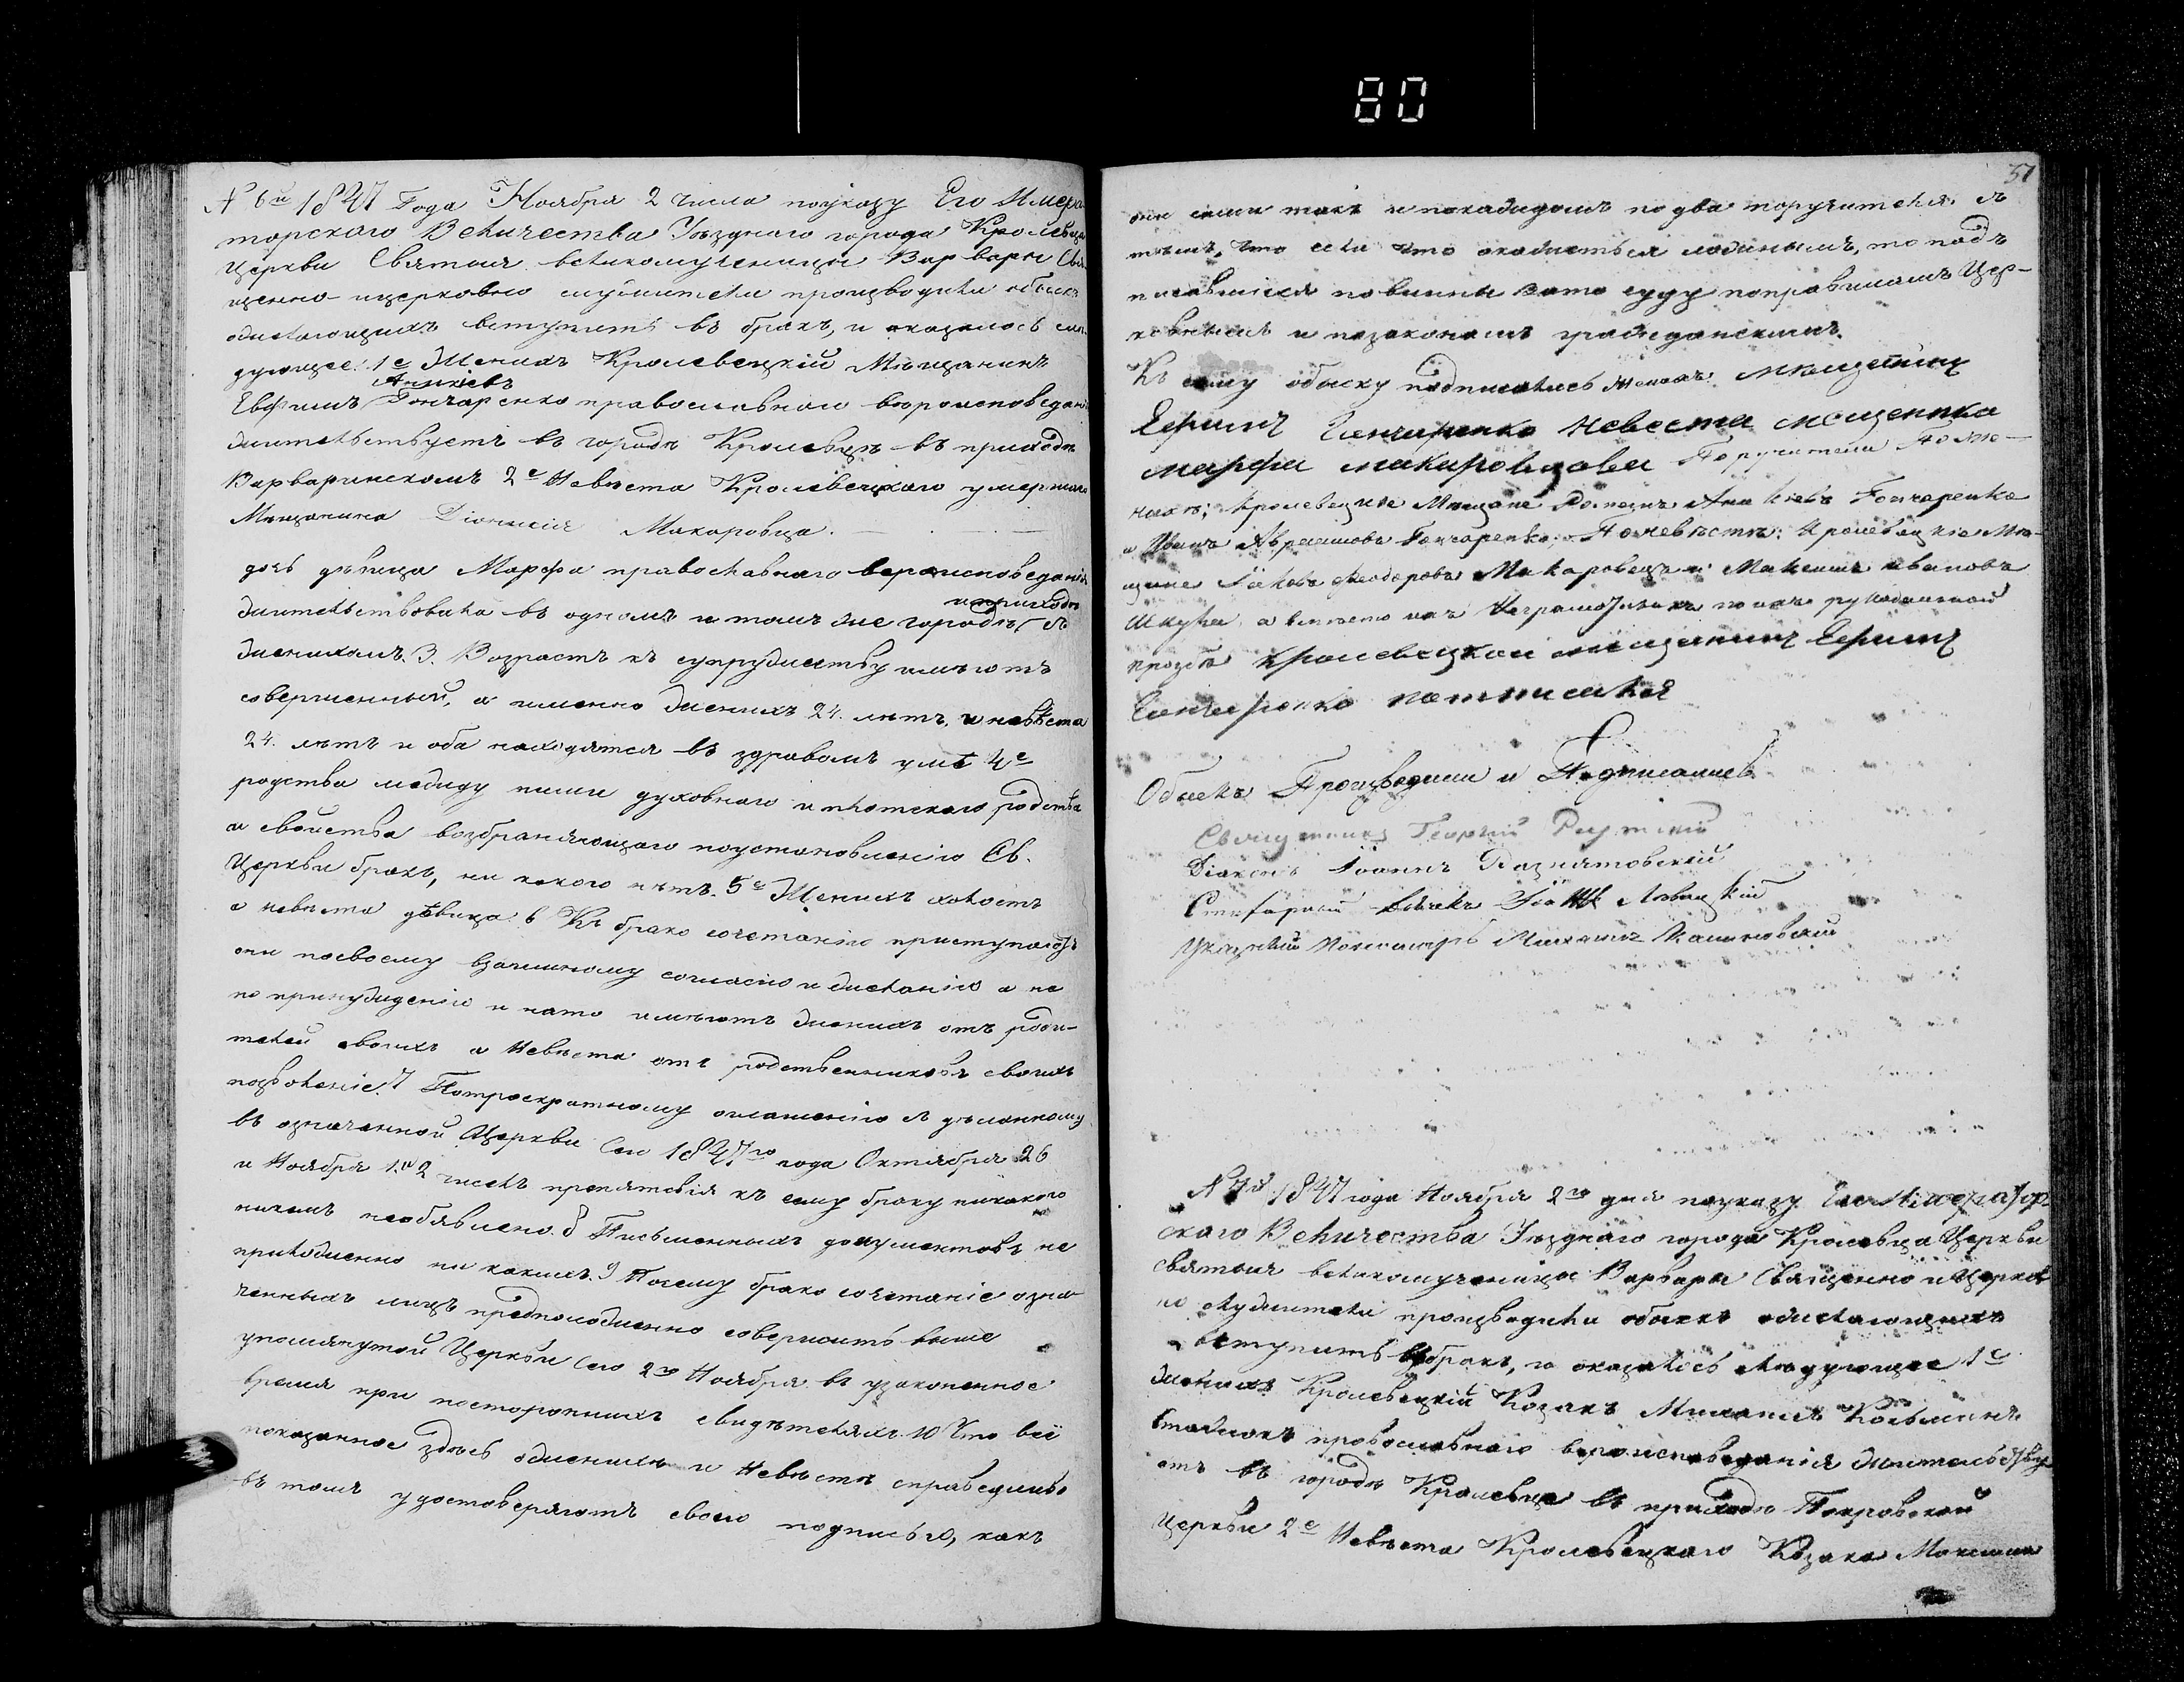 80
№ 6й 1847 Года Ноября 2 числа поуказу Его Импера
торского Величества Уѣзднаго города Кролевца
Церкви Святыя великомученицы Варвары Свя
щенно-ицерковно служители производили обыскъ
ожелающихъ вступить въ бракъ, и оказалось слѣ
дующее: 1е Женихъ Кролевецкій Мѣщанинъ
Аникіевъ
Евфимъ Гончаренко православнаго вѣроисповеданія
жительствуетъ въ городѣ Кролевцѣ въ приходѣ
Варваринскомъ 2е Невѣста Кролевецкого умершаго
Мѣщанина Діонисія Макаровца.
дочь дѣвица Марфа православнаго вероисповеданія
иприходѣ
жительствовала въ одномъ и томъ же городѣ съ
женихомъ. 3. Возрастъ къ супружеству имѣютъ
совершенный, а именно женихъ 24. лѣтъ, и невѣста
24. лѣтъ и оба находятся въ здравомъ умѣ 4е
родства между ними духовного и плотского родства
и свойства возбраняющаго поустановленію Св.
Церкви бракъ, ни какого нѣтъ. 5е Женихъ холостъ
а невѣста дѣвица. 6 Къ брако сочетанію приступаютъ
они посвоему взаимному согласію и желанію а не
по принуждению и нато имѣютъ женихъ отъ роди-
телей своихъ а Невѣста отъ родственниковъ своихъ
позволеніе. 7 Потроекратному оглашенію сдѣланному
въ означенной Церкви сего 1847го года Октября 26
и Ноября 1. и 2 числъ препятствія къ сему браку никакого
никемъ необявлено. 8 Письменныхъ документовъ не
приложенно ни какихъ. 9 Посему брако сочетаніе озна
ченныхъ лицъ предположенно совершить выше
упомянутой Церкви сего 2го Ноября въ узаконенное
время при постороннихъ свидѣтеляхъ 10 Что всё
показанное здѣсь оженихѣ и Невѣстѣ справедливо
въ томъ удостоверяютъ своею подписью, какъ
51
они сами такъ и покаждомъ по два поручителя, съ
тѣмъ, что если что окажеться ложнымъ, то подъ
писавшіися повинны зато суду поправиламъ Цер-
ковнымъ и позаконамъ гражданскимъ.
Къ сему обыску подписались женихъ мѣщенинъ
Ефимъ Гончаренко Невеста мещенпка
марфа макаровцова Поручители По же-
нихѣ: Кролевецкие Мѣщане Романъ Аникіевъ Гончаренко
и Иванъ Авраамовъ Гончаренко; Поневѣстѣ: Кролевецкіе Мѣ-
щане Іаковъ Феодоровъ Макаровецъ и Максимъ Ивановъ
Шкура, а вместо ихъ Неграмотныхъ по ихъ рукоданной
прозбѣ кролевецкой мещанинъ Ефимъ
Гончаренко патписался
Обыскъ Производили и Подписались
Священникъ Георгий
Діаконъ Іоаннъ
Стихарный дьячекъ
Указный Пономарь Михаилъ Калиновский
№ 7й 1847 года Ноября 2го дня поуказу Его Император
скаго Величества Уѣзднаго города Кролевца Церкви
святыя великомученицы Варвары Священно и Церков
но служители производили обыскъ ожелающихъ
вступить вбракъ, и оказалось слѣдующее 1е
Женихъ Кролевецкій Козакъ Михаилъ Козьминъ
православнаго вероисповеданія жительствуе
отъ въ городѣ Кролевце въ приходѣ Покровской
Церкви 2е Невѣста Кролевецкаго Козака Максима